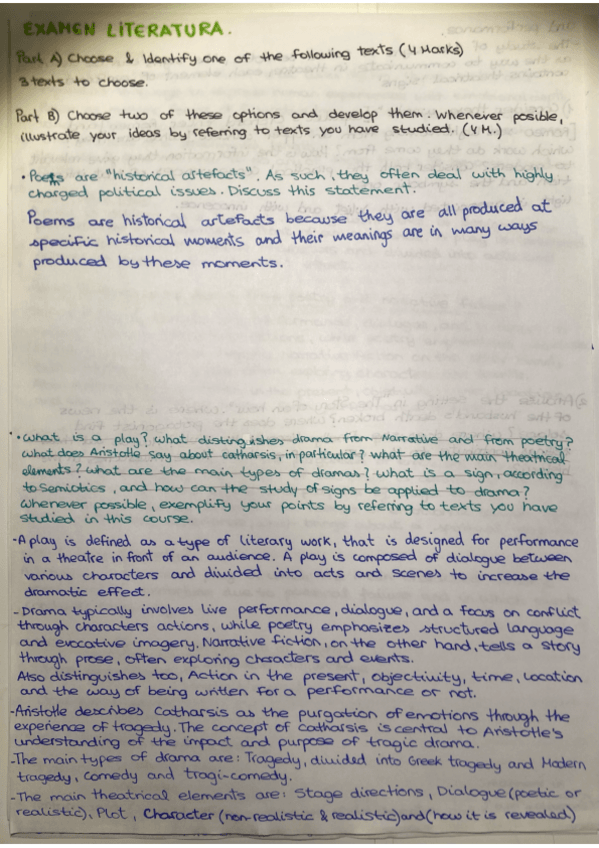 EXAMEN LITERATURA.
Part A) Choose & Identify one of the following texts (4 Marks)
3 texts to choose.
Part B) Choose two of these options and develop them. Whenever posible,
illustrate your ideas by referring to texts you have studied. (4 M.)
• Poems are "historical artefacts". As such, they often deal with highly
charged political issues. Discuss this statement.
Poems are historical artefacts because they are all produced at
specific historical moments and their meanings are in many ways
produced by these moments.
• What is a play? What distinguishes drama from Narrative and from poetry?
What does Aristotle say about catharsis, in particular? What are the main theatrical
elements? What are the main types of dramas? What is a sign, according
to Semiotics, and how can the study of signs be applied to drama?
Whenever possible, exemplify your points by referring to texts you have
studied in this course.
- A play is defined as a type of literary work, that is designed for performance
in a theatre in front of an audience. A play is composed of dialogue between
various characters and divided into acts and scenes to increase the
dramatic effect.
- Drama typically involves live performance, dialogue, and a focus on conflict
through characters actions, while poetry emphasizes structured language
and evocative imagery. Narrative fiction, on the other hand, tells a story
through prose, often exploring characters and events.
Also distinguishes too, Action in the present, objectivity, time, location
and the way of being written for a performance or not.
- Aristotle describes Catharsis as the purgation of emotions through the
experience of tragedy. The concept of catharsis is central to Aristotle's
understanding of the impact and purpose of tragic drama.
- The main types of drama are: Tragedy, divided into Greek tragedy and Modern
tragedy, Comedy and tragi-comedy.
- The main theatrical elements are: Stage directions, Dialogue (poetic or
realistic), Plot, Character (non-realistic & realistic) and (how it is revealed)